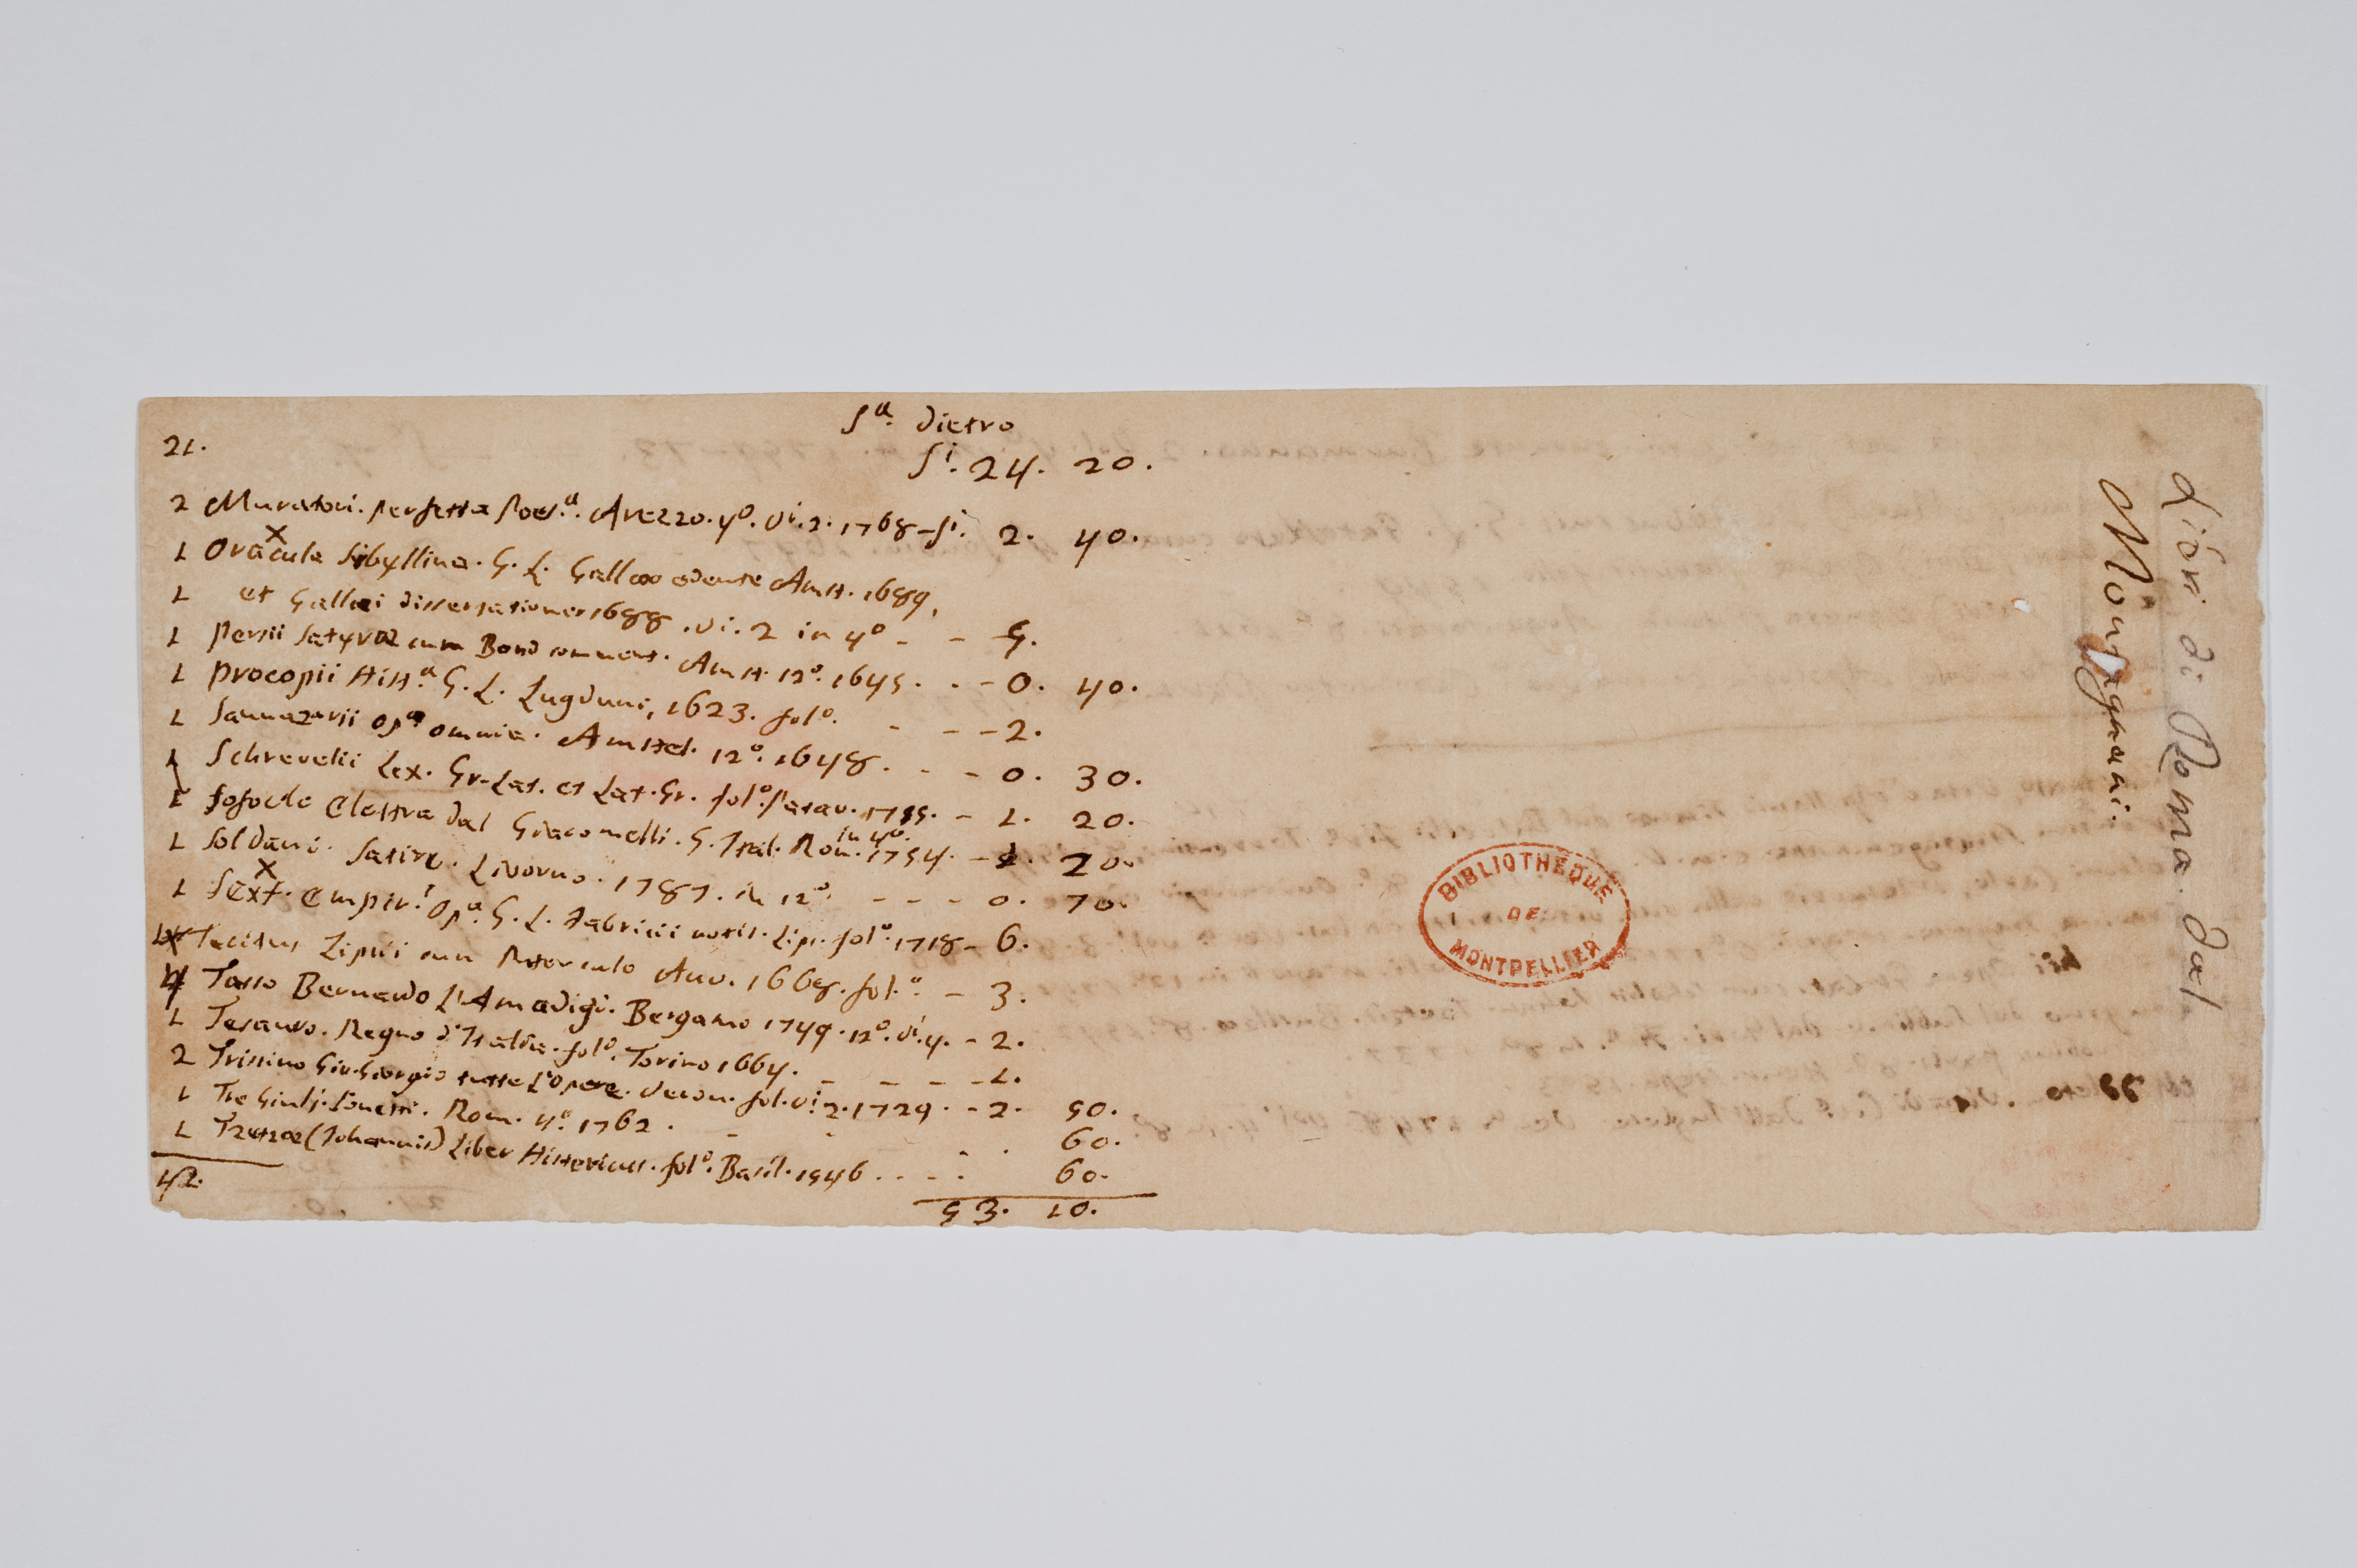 Sᵃ. dietro
21. Sⁱ. 24. 20.
2 Muratori. perfetta Poes.ᵃ. Arezzo. 4º. vⁱ. 2. 1768 - sⁱ. 2. 40.
1 Oracula Sibyllina. G. L. Gallæo edente Amst. 1689,
1 et Gallæi dissertationes 1688. vi. 2 in 4º - - 5.
1 Persii Satyræ cum Bond comment. Amst. 12º. 1645. . - 0. 40.
1 Procopii Hist.ᵃ G. L. Lugduni, 1623. folº. - - - 2.
1 Sannazarii opᵃ omnia. Amstel. 12º. 1648. . - 0. 30.
1 Schrevelii Lex. Gr-Lat. et Lat. Gr. folº. Patav. 1755. - 1. 20.
1 Sofocle Elettra dal Giacomelli. G. Ital. Rom. in 4º. 1754. - 20.
1 Soldani. Satire. Livorno. 1787. in 12º. - - - 0. 70.
1 Sext. Empirⁱ. Opᵃ. G. L. Fabricii notis. Lips. folº. 1718 - 6.
Tacitus Lipsii cum Paterculo Anv. 1668. fol.º. - 3.
4 Tasso Bernardo L'Amadigi. Bergamo 1749. 12º. vⁱ. 4. - 2.
1 Tesauro. Regno d'Italia. folº. Torino 1664. - - - - 1.
2 Trissino Gio. Giorgio tutte l'Opere. Veron. fol. vⁱ. 2. 1729. - 2. 50.
1 Tre Giulj. Sonetti. Rom. 4º. 1762. - - . . 60.
1 Tzetzæ (Johannis) Liber Historicus. folº. Basil. 1546 . . - - . 60.
42. 53. 10.
Libri di Roma dal
Montagnani.
BIBLIOTHEQUE
DE
MONTPELLIER